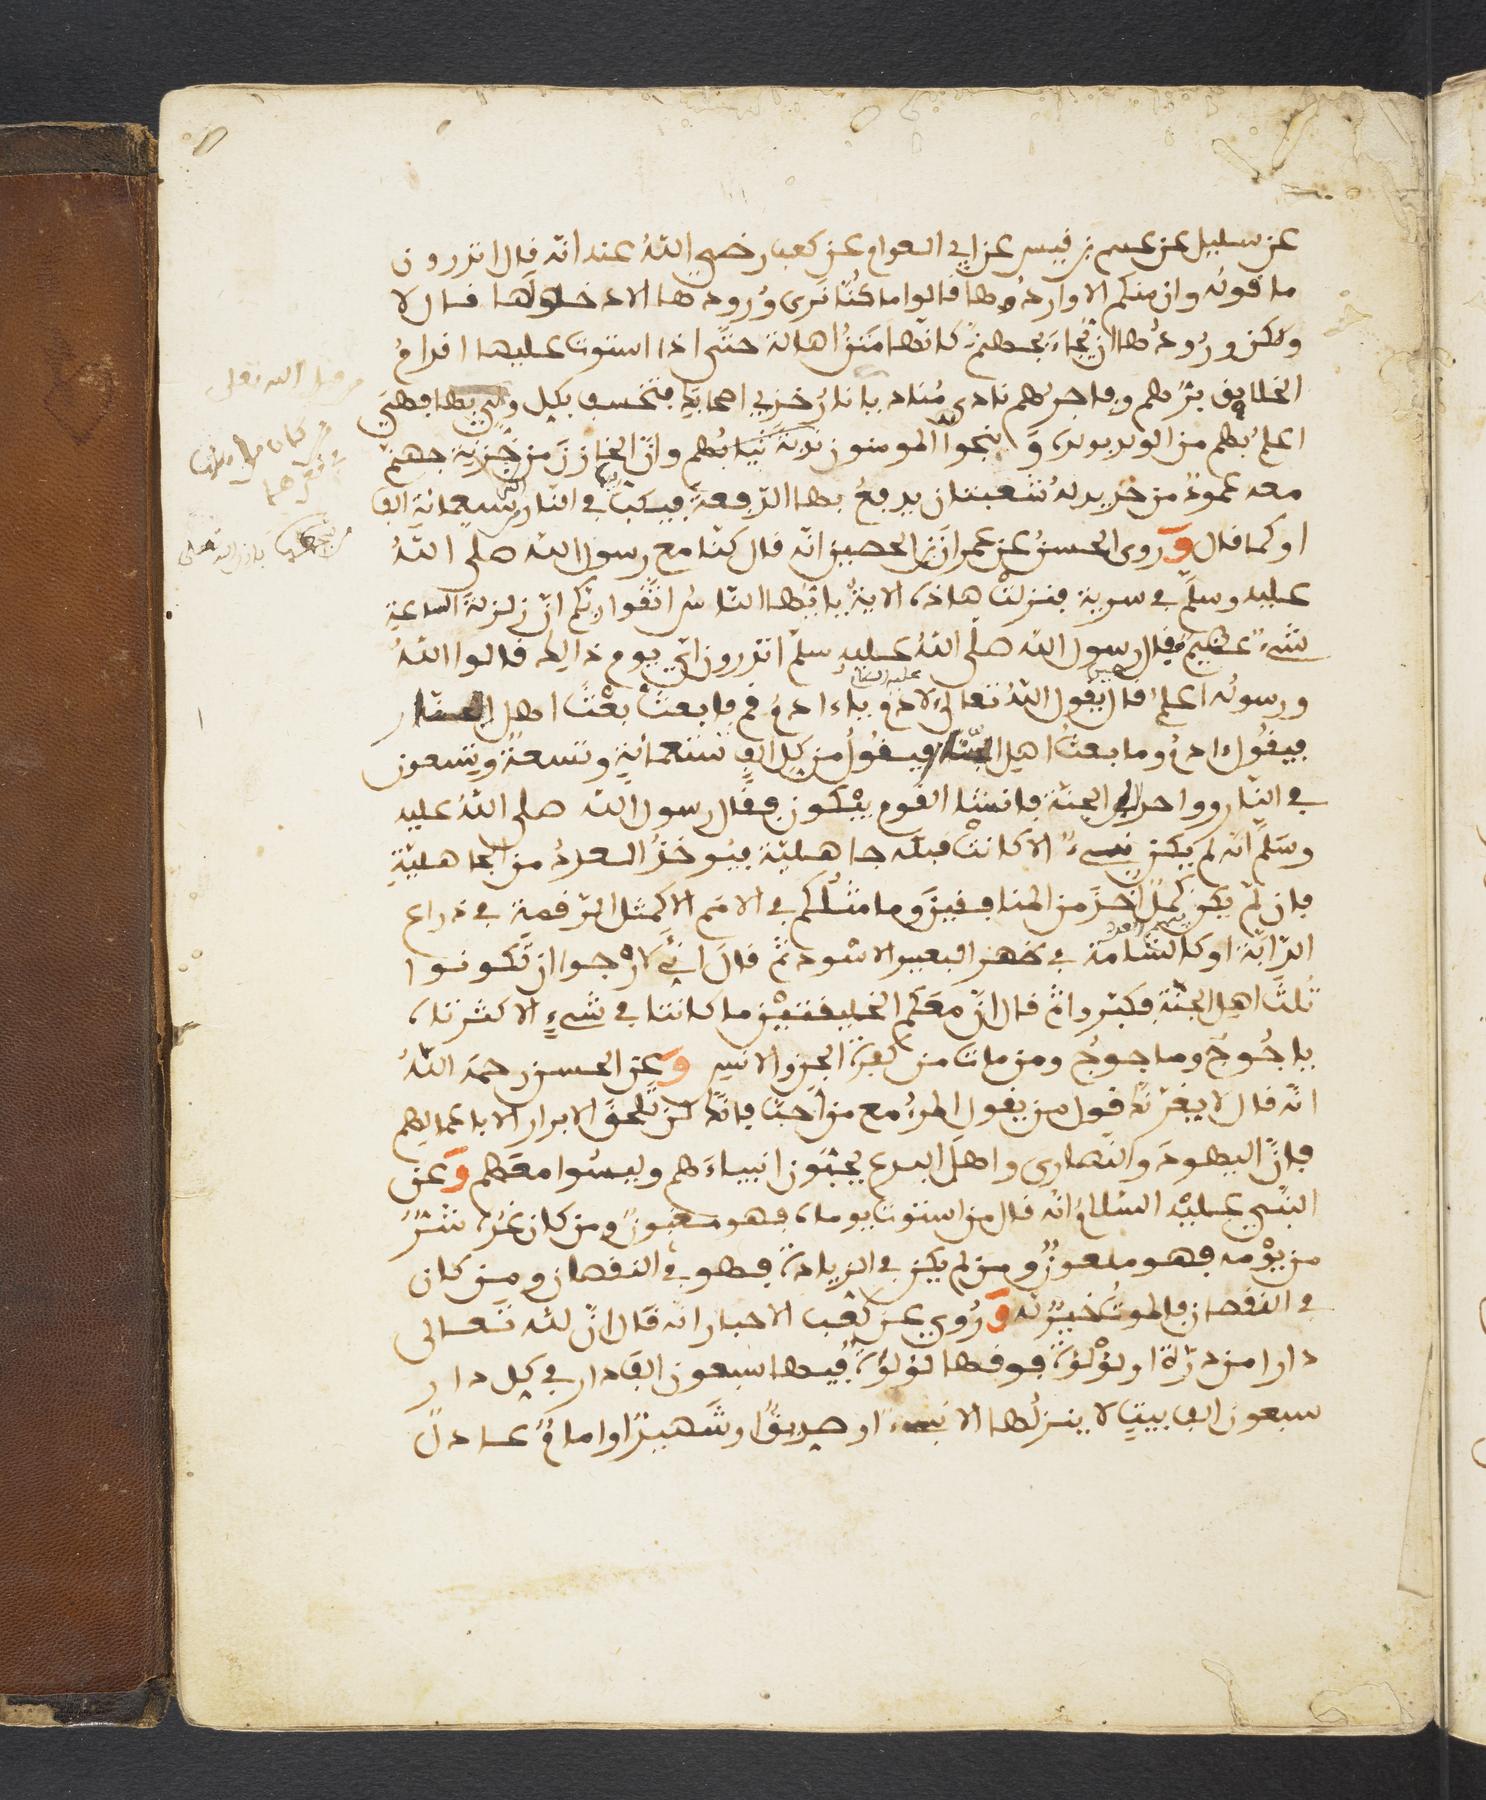 عن سليل عن عيسى بن قيس عن ابي العوام عن كعب رضي اللهُ عنه انه قال اتدرون
ما قوله وان منكم الا واردُها قالوا ما كنّا نرى وُرودها الا دخولها قال لا
ولكن وُرودُها ان يُجاءَ بجهنم كانّها مَتنُ اهالة حتى اذا استوت عليها اقدامُ
الخلايق برّهم وفاجرُهم نادى مُناد يا نارُ خذي اصحابك فتخسف بكل وليّ لها فهي
اعلم بهم من الوالد بولده وَينجوا المومنون نديّة ثيابُهم وانّ الخازنَ من خَزنة جهنم
معه عمودٌ من حديد لهُ شعبتان يدفعُ بها الدّفعة فيكب في النار سبعمائة الف
او كما قال وَروى الحسنُ عن عمرانَ بن الحصين انّه قال كنّا مع رسول الله صلى اللهُ
عليه وسلّم في سرية فنزلتْ هاذه الاية يا ايّها النّاسُ اتّقوا ربّكم انّ زلزلةَ الساعةِ
شيءٌ عظيمٌ فقال رسول الله صلّى اللهُ عليه وسلّم اتدرون ايّ يوم ذالك قالوا اللهُ
ورسولُه اعلمُ قال يقول اللهُ تعالى لادم عليه السلامُ يا ءادمُ قم فابعثْ بعْثَ اهل النار
فيقُول ءادمُ وما بعثُ اهل النار فيقُولُ من كل الف تسعمائةٍ وتسعةٌ وتسعون
في النّار وواحد الى الجنّة فانشا القوم يبْكون فقال رسول الله صلى اللهُ عليه
وسَلّم انّه لم يكن نبيءٌ الا كانتْ قبله جاهليّة فيُوخذُ العددُ من الجاهليّة
فان لمْ يكن كملَ اخذَ من المنافقينَ وما مثلُكم في الامَم الا كمثل الرّقمة في ذراع
الدّابّة او كالشّامة في جنب البعير الاسْود ثمّ قالَ انّي لارْجوا ان تَكونوا
ثلثَ اهل الجنّة فكبّروا ثمّ قال انّ معَكم الخليقتيْن ما كانتا في شيءٍ الا كثرتاه
ياجُوجُ وماجوجُ ومن مات من كفرة الجن والانس وَعن الحسن رحمه اللهُ
انّه قال لا يغرّنّك قول من يقول المرءُ مع من احَبّ فانّك لنْ تلحقَ الابرار الا باعمالهم
فانّ اليهودَ والنّصارى واهلَ البدع يحبّون انبياءَهم وليسُوا معَهم وَعن
النّبيّ عليْه السّلامُ انّه قال من استوت يوماه فهو مغبونٌ ومن كان غدُه شرٌّ
من يوْمه فهو ملعونٌ ومن لم يكن في الزيادة فهو في النقصان ومن كان
في النقصان فالموتُ خيرٌ له وَرُوي عن كعْب الاحبار انّه قال انّ للّه تعالى
دارا من درّة او لؤْلؤة فوقها لؤلؤةٌ فيها سبعون الف دار في كل دار
سبعون الف بيتٍ لا ينزلُها الا نبيءٌ او صديقٌ او شَهيدٌ او امامٌ عادلٌ
من قول الله تعلى
كان
باذن الله تعالى